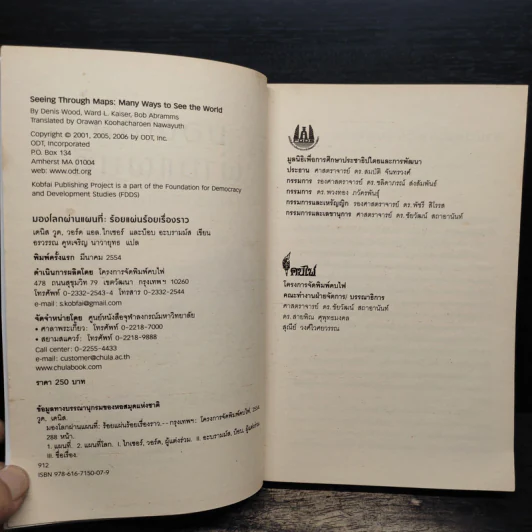 Seeing Through Maps: Many Ways to See the World
By Denis Wood, Ward L. Kaiser, Bob Abramms
Translated by Orawan Koohacharoen Nawayuth
Copyright © 2001, 2005, 2006 by ODT, Inc.
ODT, Incorporated
P.O. Box 134
Amherst MA 01004
web: www.odt.org
Kobfai Publishing Project is a part of the Foundation for Democracy
and Development Studies (FDDS)
มองโลกผ่านแผนที่: ร้อยแผ่นร้อยเรื่องราว
เดนิส วูด, วอร์ด แอล.ไกเซอร์ และบ็อบ อะบรามมัส เขียน
อรวรรณ คูหเจริญ นาวายุทธ แปล
พิมพ์ครั้งแรก มีนาคม 2554
ดำเนินการผลิตโดย โครงการจัดพิมพ์คบไฟ
478 ถนนสุขุมวิท 79 เขตวัฒนา กรุงเทพฯ 10260
โทรศัพท์ 0-2332-2543-4 โทรสาร 0-2332-2544
e-mail : s.kobfai@gmail.com
จัดจำหน่ายโดย ศูนย์หนังสือจุฬาลงกรณ์มหาวิทยาลัย
• ศาลาพระเกี้ยว: โทรศัพท์ 0-2218-7000
• สยามสแควร์ : โทรศัพท์ 0-2218-9888
Call center : 0-2255-4433
e-mail: customer@chula.ac.th
www.chulabook.com
ราคา 250 บาท
ข้อมูลทางบรรณานุกรมของหอสมุดแห่งชาติ
วูด, เดนิส.
มองโลกผ่านแผนที่: ร้อยแผ่นร้อยเรื่องราว.-- กรุงเทพฯ: โครงการจัดพิมพ์คบไฟ, 2554.
288 หน้า.
1. แผนที่. 2. แผนที่โลก. I. ไกเซอร์, วอร์ด, ผู้แต่งร่วม. II. อะบรามมัส, บ๊อบ, ผู้แต่งร่วม.
III. ชื่อเรื่อง.
912
ISBN 978-616-7150-07-9
มูลนิธิเพื่อการศึกษาประชาธิปไตยและการพัฒนา
ประธาน ศาสตราจารย์ ดร.สมบัติ จันทรวงศ์
กรรมการ รองศาสตราจารย์ ดร.ชลิดาภรณ์ ส่งสัมพันธ์
กรรมการ ดร.พวงทอง ภวัครพันธุ์
กรรมการและเหรัญญิก รองศาสตราจารย์ ดร.พัชรี สิโรรส
กรรมการและเลขานุการ ศาสตราจารย์ ดร.ไชยวัฒน์ สถาอานันท์
คบไฟ
โครงการจัดพิมพ์คบไฟ
คณะทำงานฝ่ายจัดการ/ บรรณาธิการ
ศาสตราจารย์ ดร.ชัยวัฒน์ สถาอานันท์
ดร.สายพิณ ศุพุทธมงคล
สุณีย์ วงศ์ไวศยวรรณ